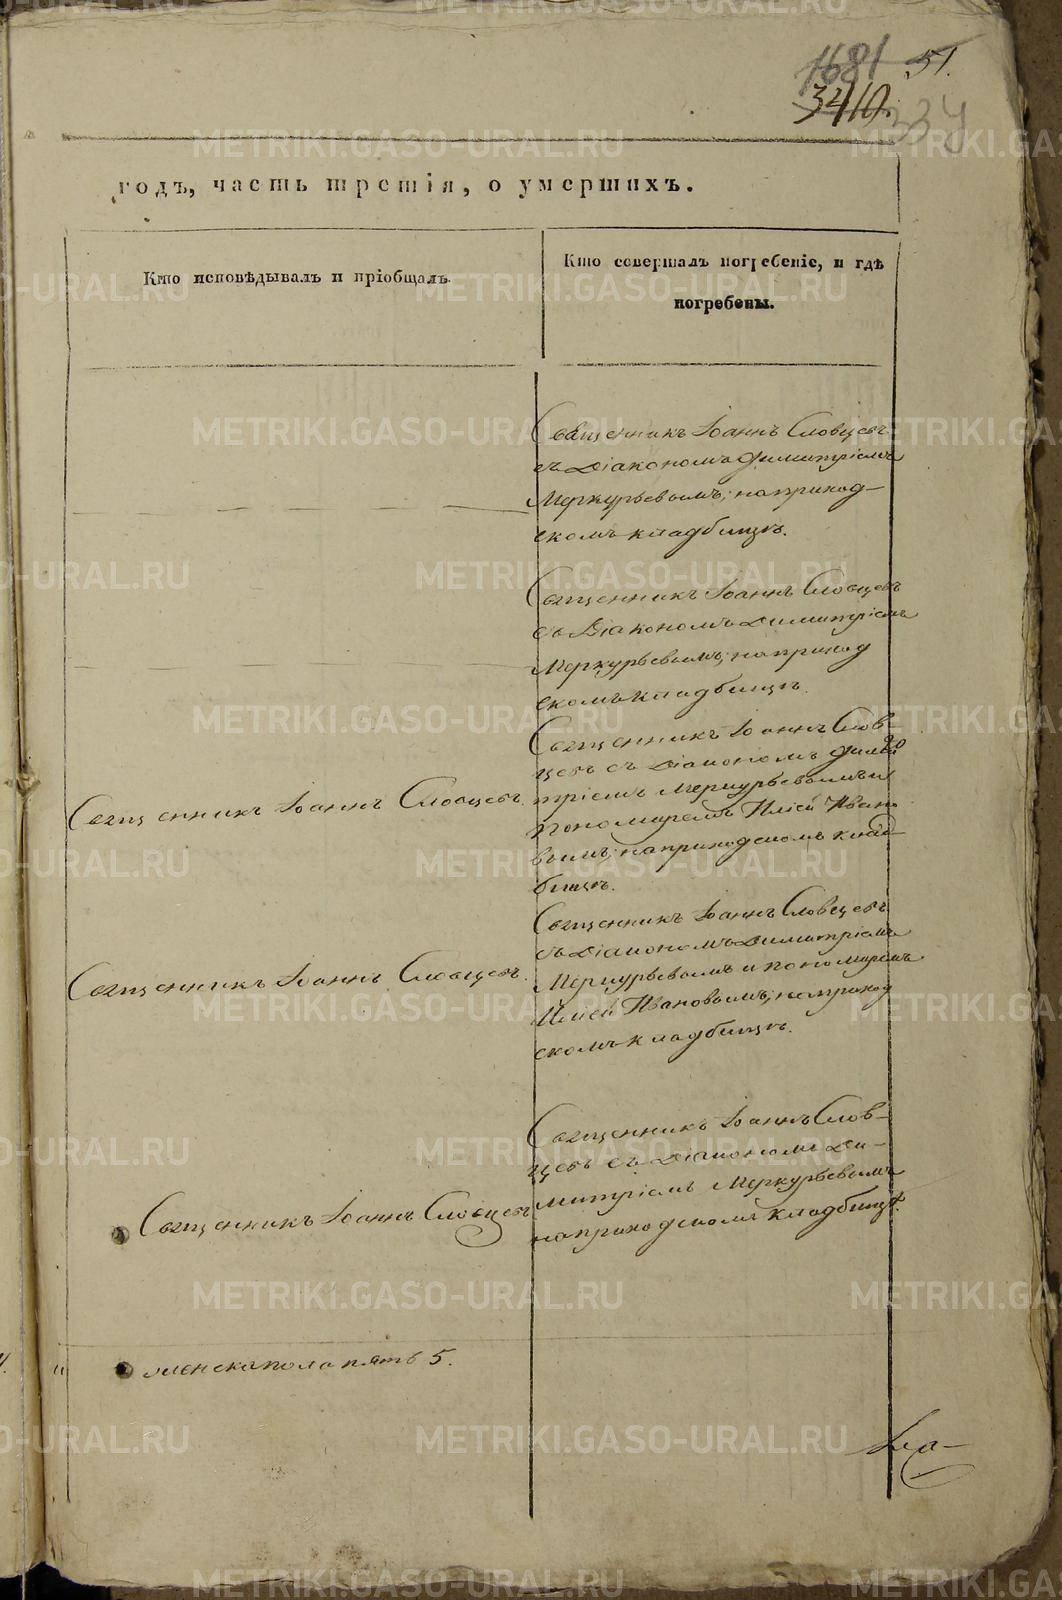 1681 51.
3410.
334
годъ, часть третія, о умершихъ.
Кто исповѣдывалъ и пріобщалъ.
Кто совершалъ погребеніе, и гдѣ
погребены.
Священникъ Іоаннъ Словцевъ
съ Діакономъ Димитріемъ
Меркурьевымъ; на приход-
скомъ кладбищѣ.
Священникъ Іоаннъ Словцевъ
съ Діакономъ Димитріемъ
Меркурьевымъ; на приход
скомъ кладбищѣ.
Священникъ Іоаннъ Словцевъ.
Священникъ Іоаннъ Слов-
цевъ съ Діакономъ Дими
тріемъ Меркурьевымъ и
пономаремъ Иліей Ивано
вымъ; на приходскомъ клад-
бищѣ.
Священникъ Іоаннъ Словцевъ.
Священникъ Іоаннъ Словцевъ
съ Діакономъ Димитріемъ
Меркурьевымъ и пономаремъ
Иліей Ивановымъ; на приход
скомъ кладбищѣ.
Священникъ Іоаннъ Словцевъ
Священникъ Іоаннъ Слов-
цевъ съ Діакономъ Ди-
митріемъ Меркурьевымъ
на приходскомъ кладбищѣ.
женска пола пять 5.
METRIKI.GASO-URAL.RU